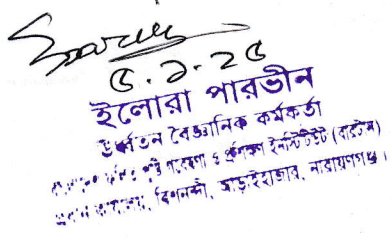 ৫.১.২৫
ইলোরা পারভীন
উর্ধ্বতন বৈজ্ঞানিক কর্মকর্তা
গবেষণা ও প্রশিক্ষণ ইনস্টিটিউট (বারটান)
কার্যালয়, বিশনন্দী, আড়াইহাজার, নারায়ণগঞ্জ।